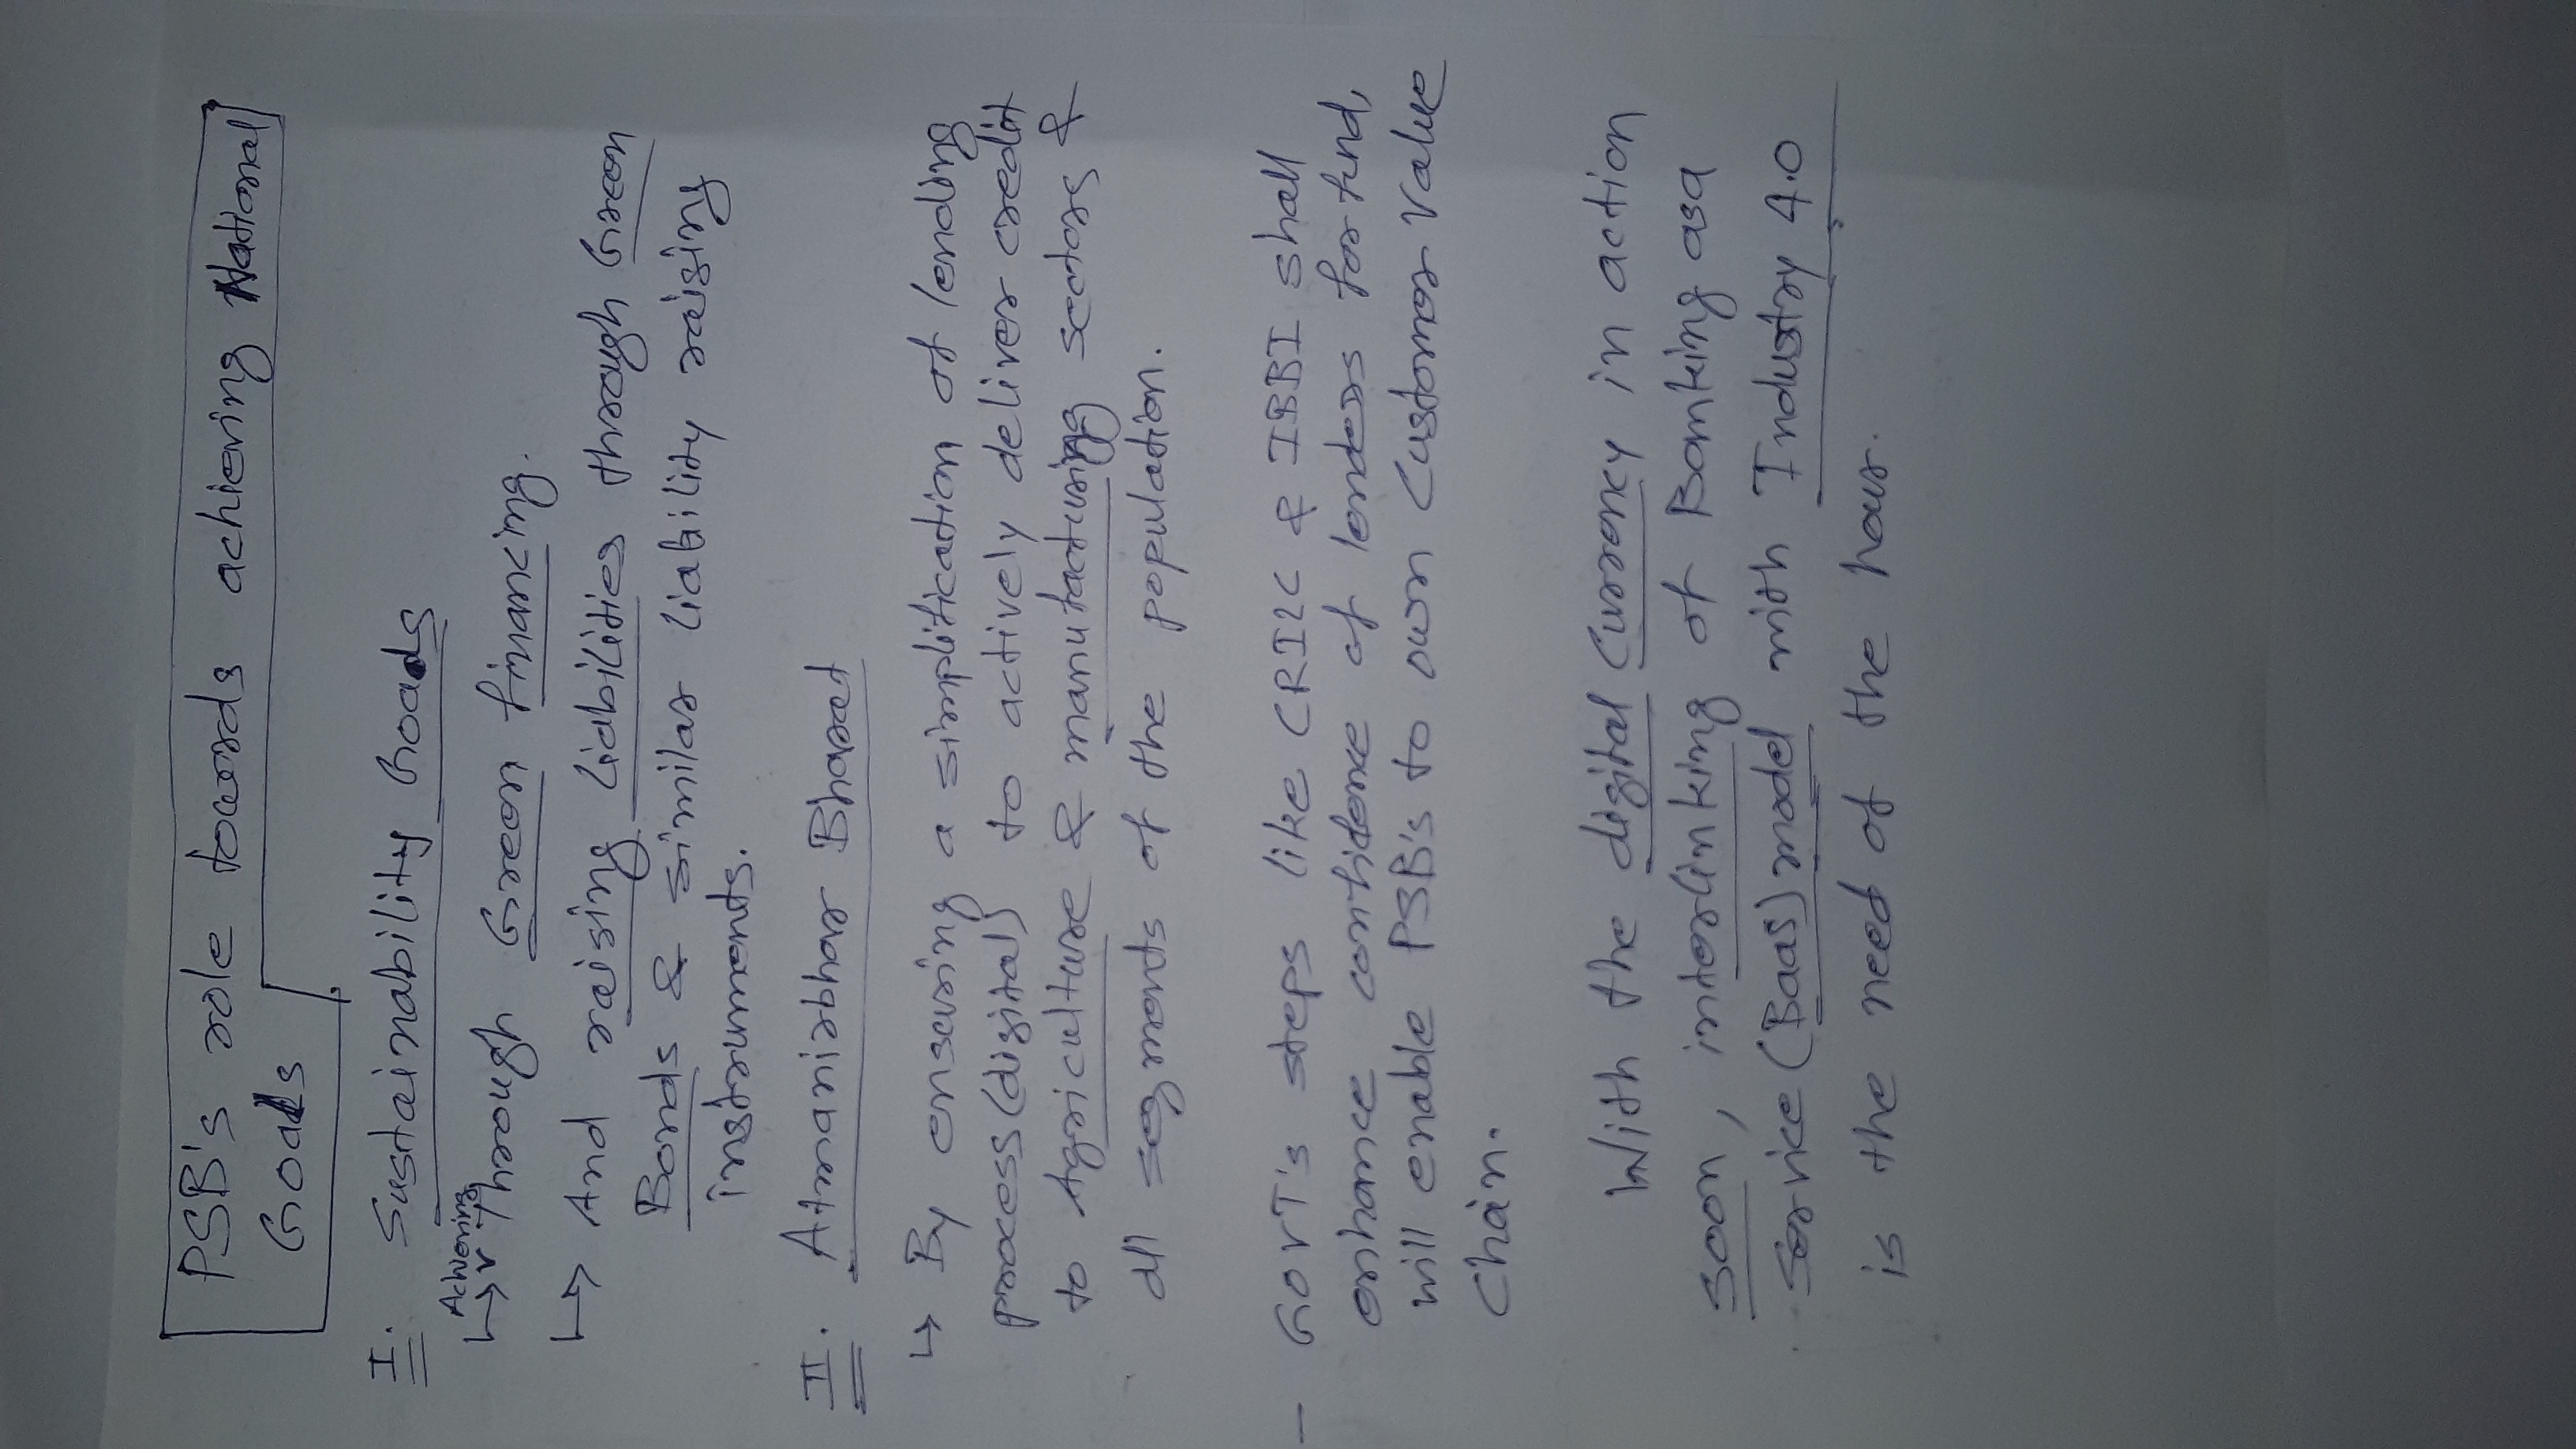 PSB's role towards achieving National
Goals
I. Sustainability Goals
Achieving
↳ through Green financing.
↳ And raising liabilities through Green
Bonds & similar liability raising
instruments.
II. Atmanirbhar Bharat
↳ By ensuring a simplification of lending
process (digital) to actively deliver credit
to Agriculture & manufacturing sectors &
all segments of the population.
- GOVT's steps like CRILC & IBBI shall
enhance confidence of lenders further,
will enable PSB's to own Customer value
Chain.
With the digital Currency in action
soon, interlinking of Banking as a
Service (BaaS) model with Industry 4.0
is the need of the hour.